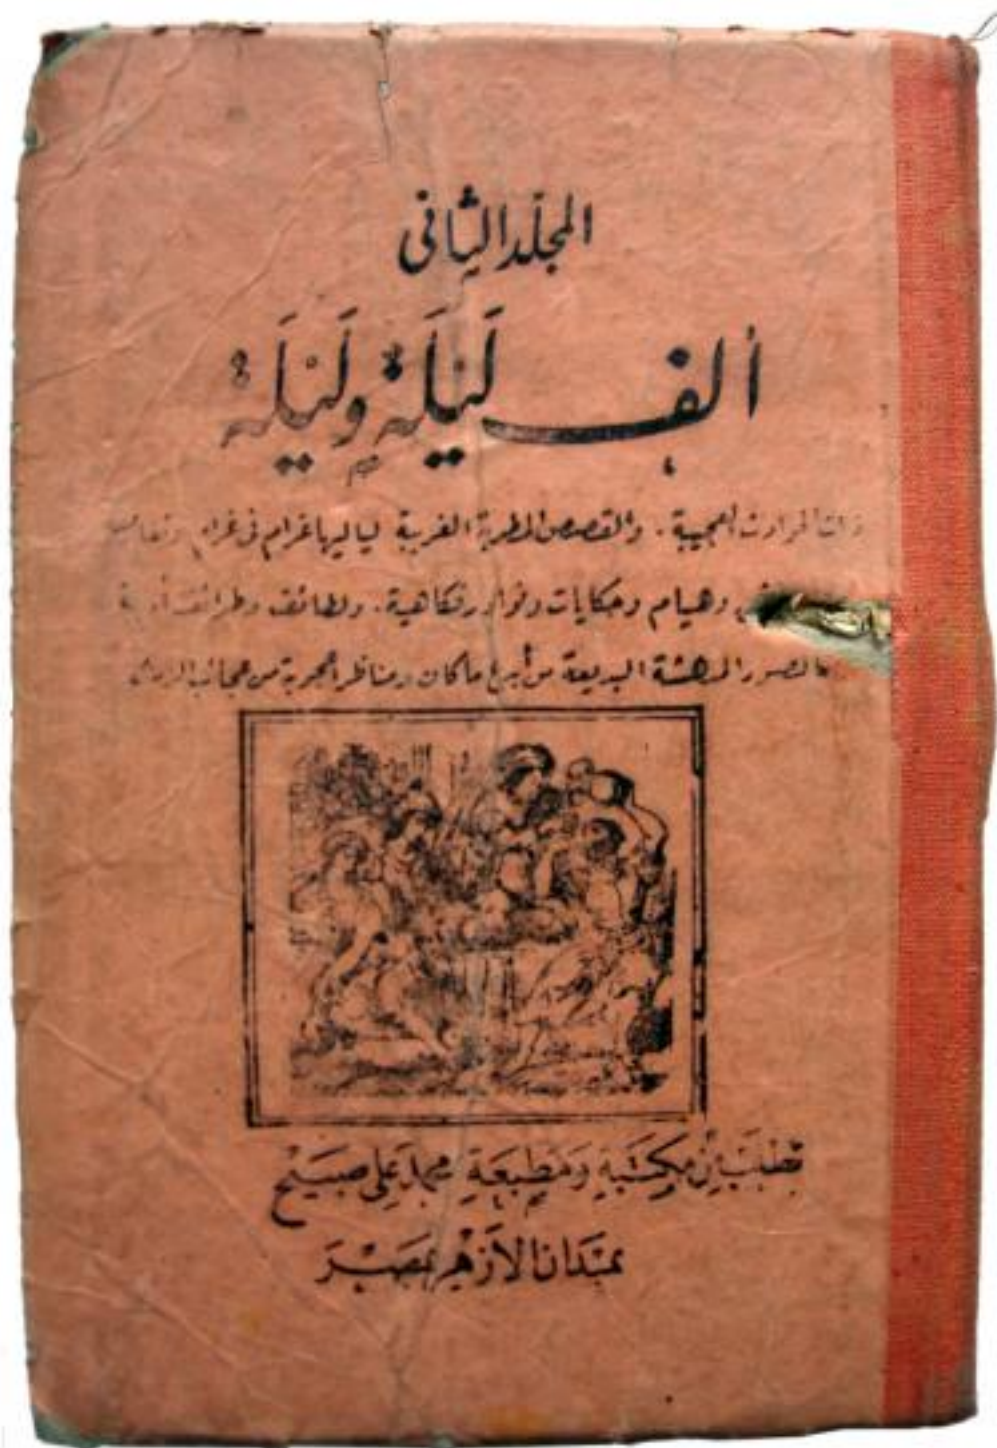 المجلد الثانى
ألف لَيْلَة وَلَيْلَة
ذات الحوادث العجيبة . والقصص المطربة الغريبة لياليها غرام فى غرام
وهيام وحكايات ونوادر فكاهية . ولطائف وطرائف أدبية
بالصور المدهشة البديعة من أبدع ما كان ومناظر أعجوبة من عجائب الزمان
تطلب من مكتبة ومطبعة محمد على صبيح
بميدان الأزهر بمصر